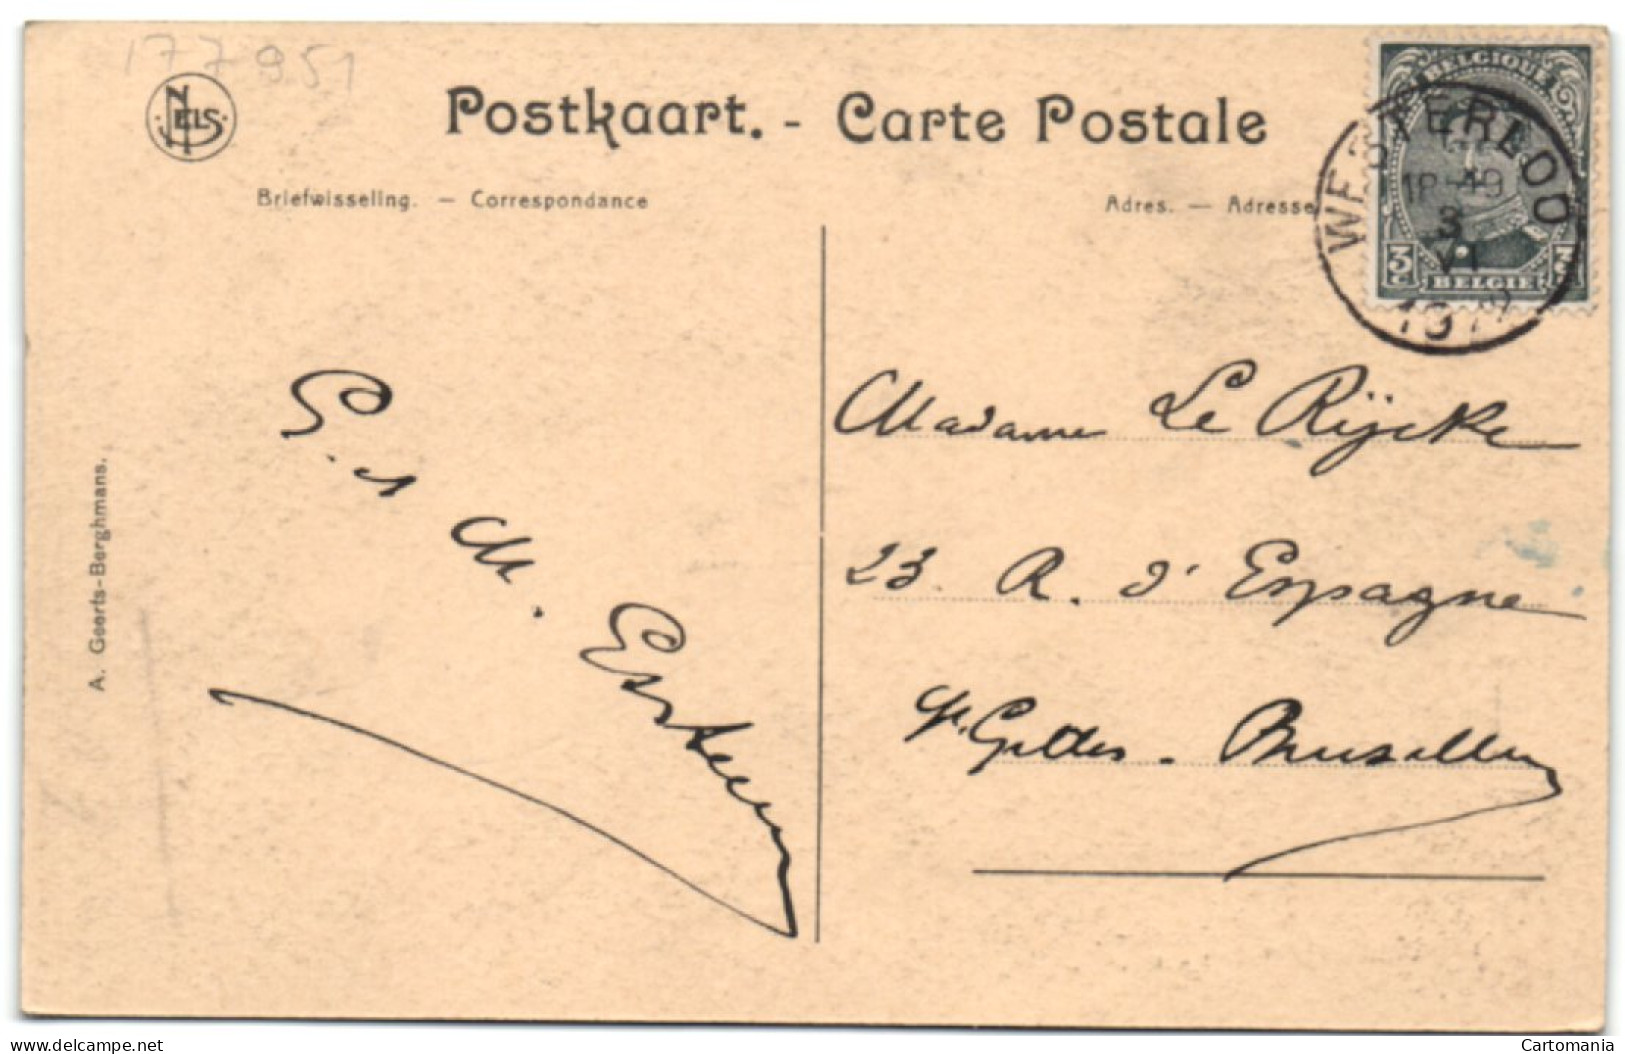 177951
NELS
Postkaart. - Carte Postale
Briefwisseling. — Correspondance
Adres. — Adresse
BELGIQUE
3c
BELGIE
WESTERLOO
18-19
3
VI
A. Geerts-Berghmans.
G. et M.
Madame Le Rijcke
23 R. d'Espagne
St. Gilles - Bruxelles
delcampe.net
Cartomania